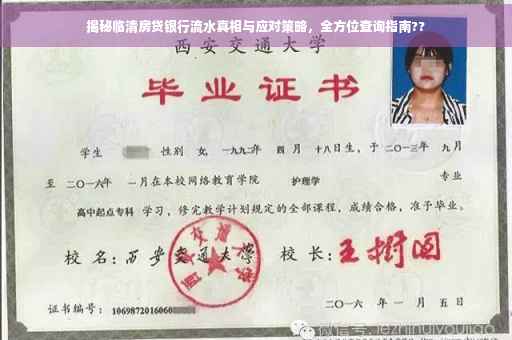 揭秘临清房贷银行流水真相与应对策略，全方位查询指南??
西安交通大学
毕业证书
学生 性别 女，一九九二年 四月 十八日生，于二〇一三年 九月
至 二〇一六年 一月在本校网络教育学院 护理学 专业
高中起点专科 学习，修完教学计划规定的全部课程，成绩合格，准予毕业。
校 名：西安交通大学 校 长：王树国
西安交通大学
证书编号：1069872016060 二〇一六 年 一 月 五 日
微信号: jezhihuiyoujiao